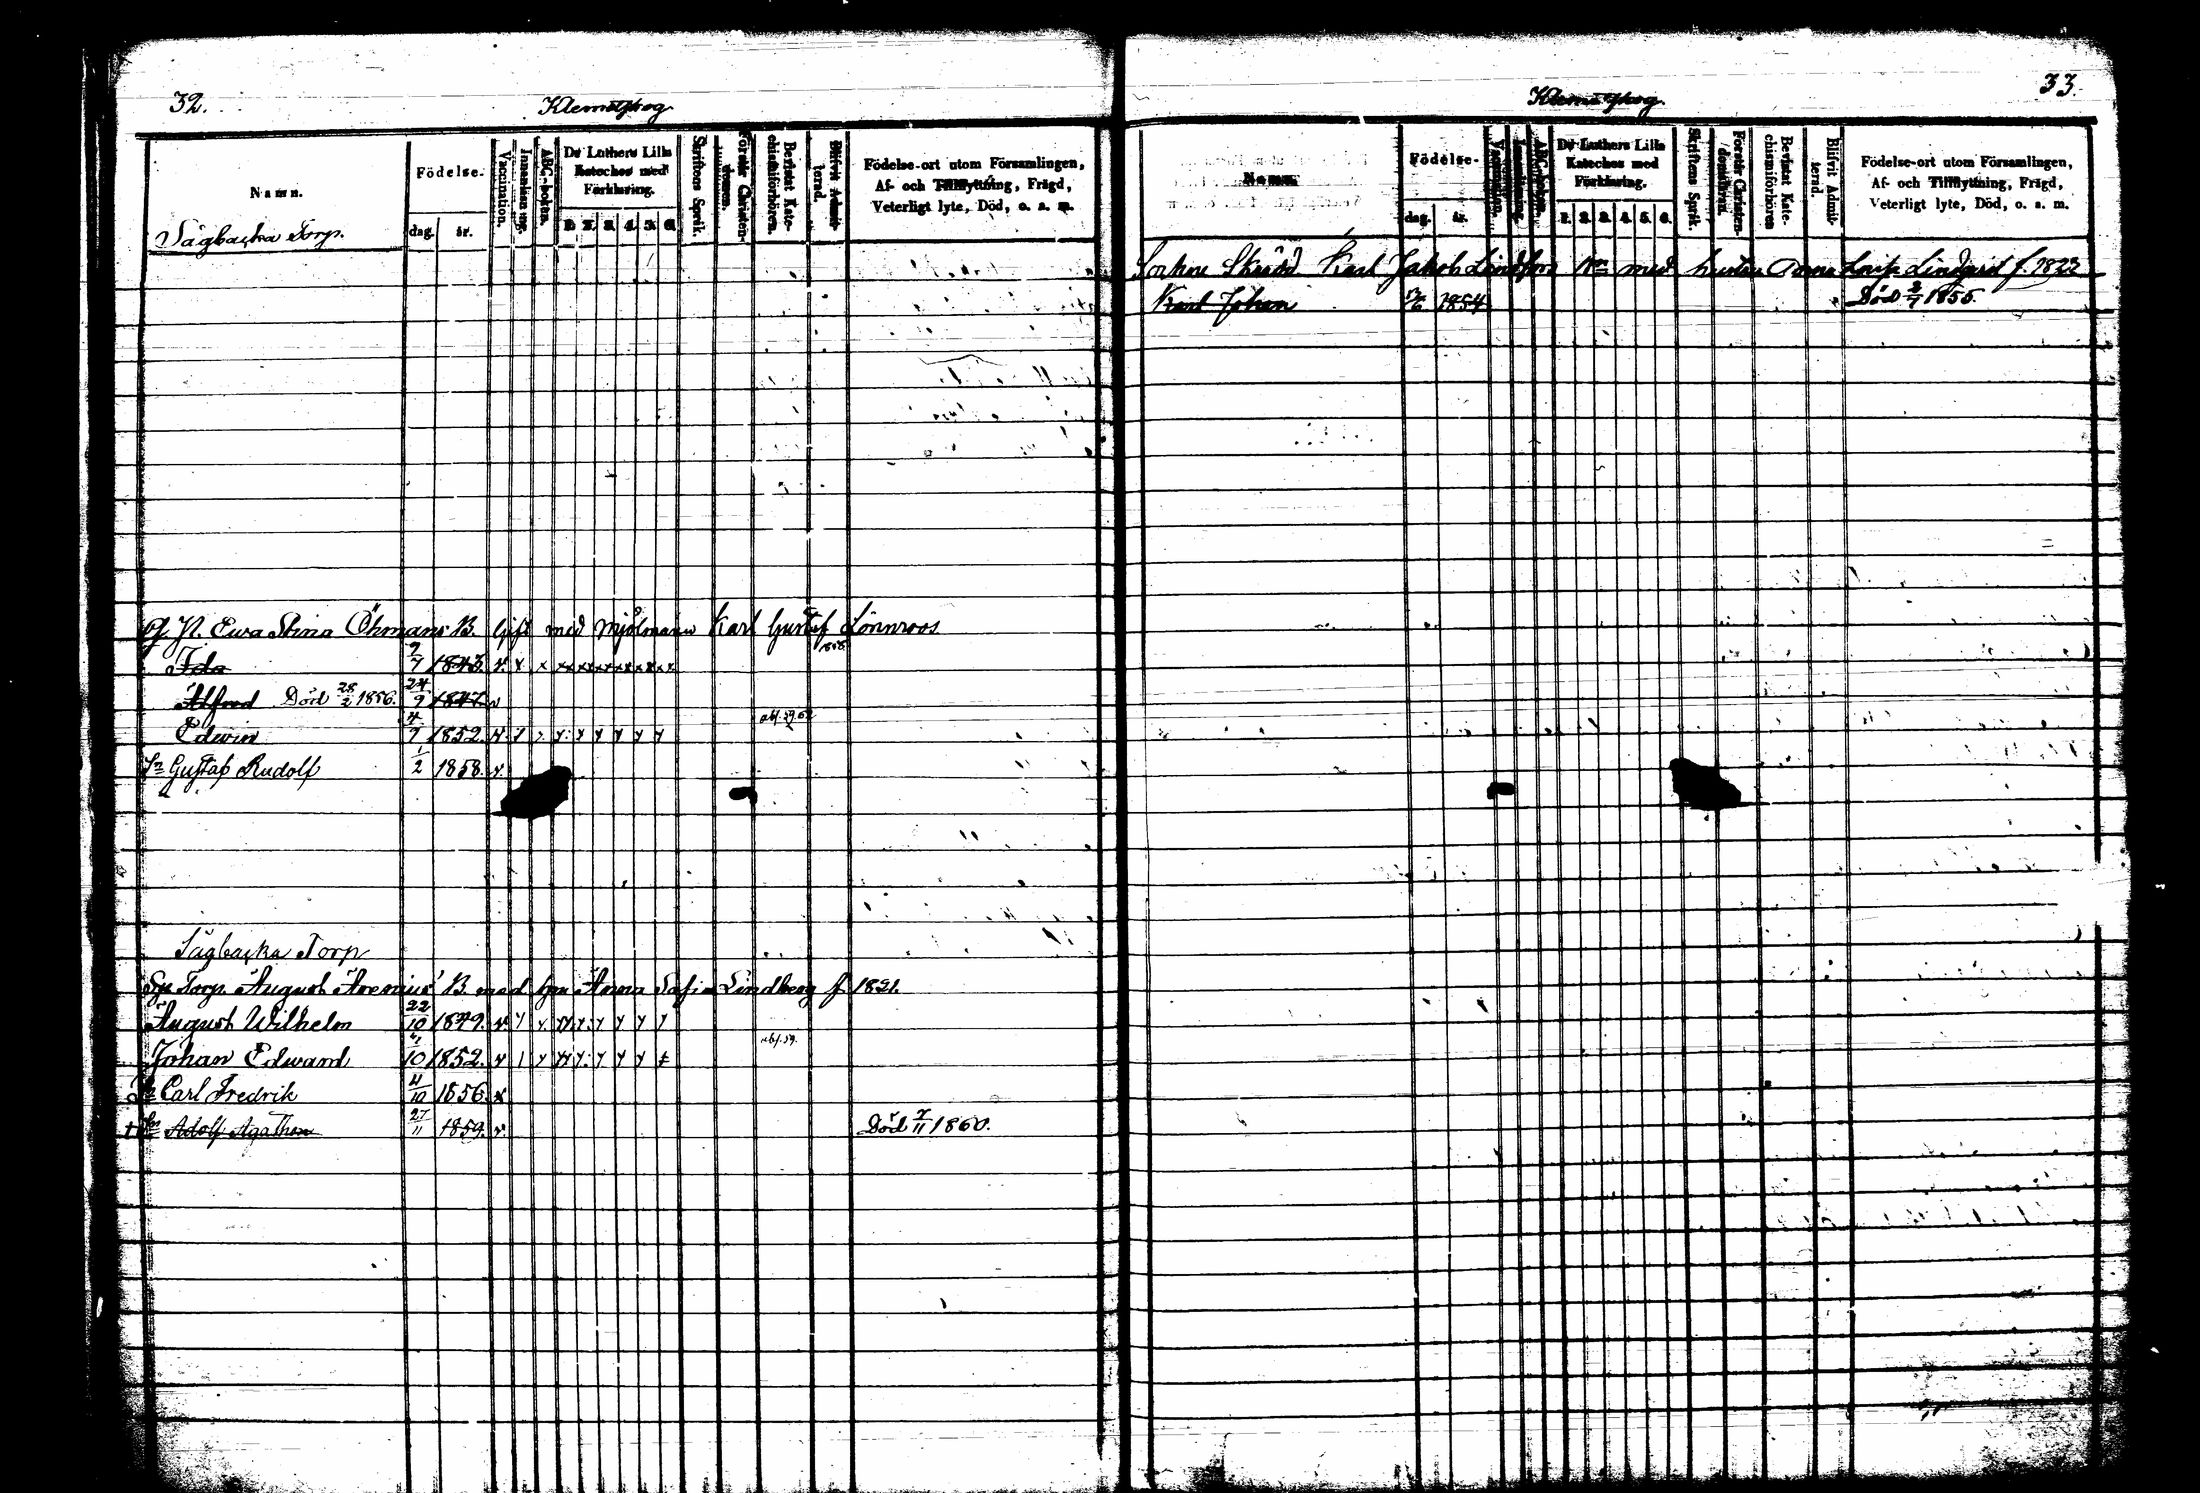 32.
Klemetskog
Namn.
Födelse-
dag. år.
Vaccination.
Innanläsning.
ABC-boken.
Dr Luthers Lilla Kateches med Förklaring.
1. 2. 3. 4. 5. 6.
Skriftens Språk.
Förstår Christendomen.
Bevistat Katechismiförhören.
Blifvit Admitterad.
Födelse-ort utom Församlingen,
Af- och Tillflyttning, Frägd,
Veterligt lyte, Död, o. s. m.
Sågbacka Torp.
Ewa Stina Öhmans B. Gift med Mjölnaren Karl Gustaf Lönnroos
Ida 9/7 1843. v. 1858
Alfred Död 28/2 1856. 24/9 1847. v
Edwin 4/7 1852. v.
Sn Gustaf Rudolf 1/2 1858. v.
Sågbacka Torp
Torp. August Arenius' B. med hu Anna Sofia Lindberg f. 1821.
August Wilhelm 22/10 1849. v.
Johan Edward 10 1852. v
Sn Carl Fredrik 4/10 1856.
† Sn Adolf Agathon 27/11 1859. v. Död 7/11 1860.
33.
Klemetskog.
Namn.
Födelse-
dag. år.
Vaccination.
Innanläsning.
ABC-boken.
Dr Luthers Lilla Kateches med Förklaring.
1. 2. 3. 4. 5. 6.
Skriftens Språk.
Förstår Christendomsläran.
Bevistat Katechismiförhören
Blifvit Admitterad.
Födelse-ort utom Församlingen,
Af- och Tillflyttning, Frägd,
Veterligt lyte, Död, o. s. m.
Socken Skrädd. Karl Jakob Lindfors Bn med hustru Lovisa Lindqvist f. 1823
Karl Johan 1854. Död 2/7 1855.